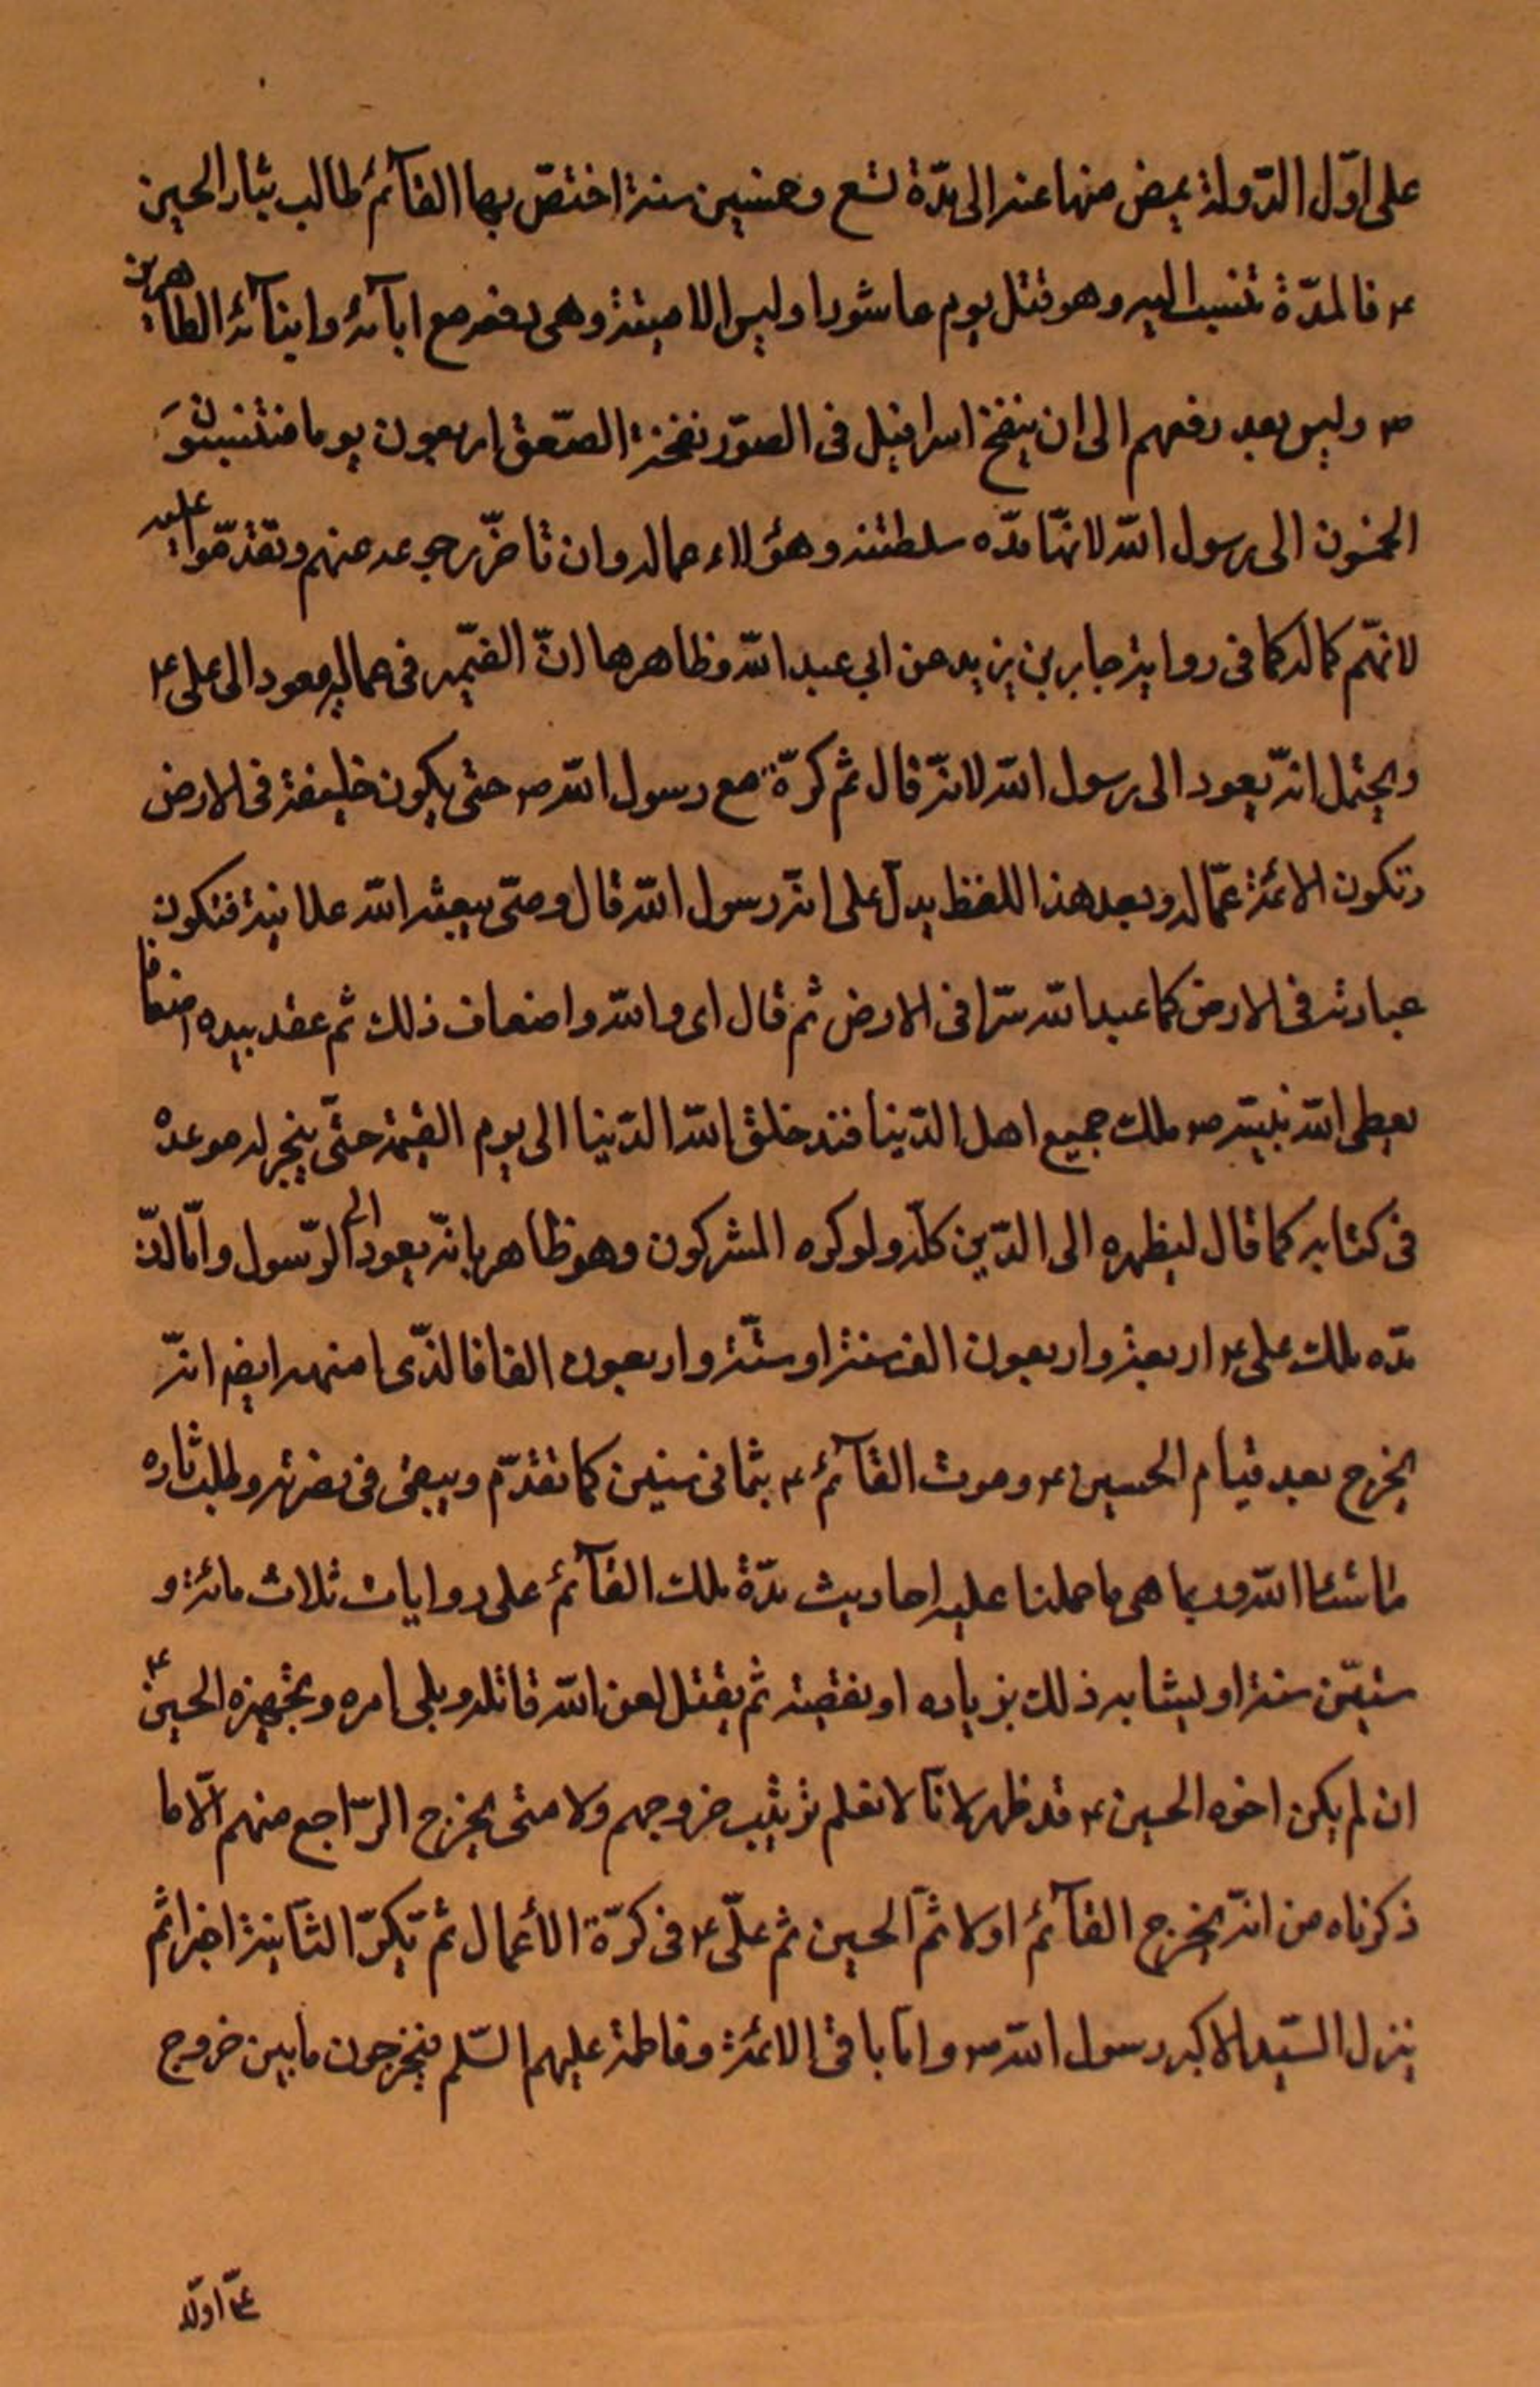 على اوّل الدّولة يمض منها عنه الى مدّة تسع وخمسين سنة اختصّ بها القآئمُ طالب بثار الحسين
ع فالمدّة تنسب اليه وهو قتل يوم عاشورا وليس الا ميتة وهى رفعه مع ابآئه وابنآئه الطاهرين
ص وليس بعد رفعهم الى ان ينفخ اسرافيل فى الصوّر نفخة الصّعق اربعون يوما فتنسب
الخمسون الى رسول الله لانهّا مدّه سلطنته وهؤلاء عماله وان تاخّر رجوعه عنهم وتقدمّوا عليه
لانهّم كماله كما فى رواية جابر بن يزيد عن ابي عبد الله وظاهرها انّ الضّمير فى عماله يعود الى على ع
ويحتمل انّه يعود الى رسول الله لانّه قال ثم كرّة مع رسول الله ص حتى يكون خليفة فى الارض
وتكون الائمّة عمّاله وبعد هذا اللفظ يدلّ على انّه رسول الله قال وحتّى يبعثه الله علانية فتكون
عبادته فى الارض كما عبد الله سرّا فى الارض ثم قال اى والله واضعاف ذلك ثم عقد بيده اضعافا
يعطى الله نبيّه ص ملك جميع اهل الدّنيا منذ خلق الله الدّنيا الى يوم القيمة حتّى ينجز له موعده
فى كتابه كما قال ليظهره الى الدّين كلّه ولو كره المشركون وهو ظاهر بانّه يعود الى الرّسول وامّا
مدّه ملك على ع اربعة واربعون الف سنة او ستّة واربعون الفا فالذّى افهمه ايضا انّه
يخرج بعد قيام الحسين ع وموت القآئمُ ع بثمانى سنين كما تقدّم ويبقى فى نصرته وطلب ثاره
ما شاء الله وربما هى ما حملنا عليه احاديث مدّة ملك القآئمُ على روايات ثلاث مائة و
ستّين سنة او يشابه ذلك بزياده او نقيصة ثم يقتل لعن الله قاتله ويلى امره وتجهيزه الحسين ع
ان لم يكن اخوه الحسين ع قد ظهر لانّا لا نعلم ترتيب خروجهم ولا متى يخرج الرّاجع منهم الّا ما
ذكرناه من انّه يخرج القآئمُ اولا ثمّ الحسين ثم علّى ع فى كرّة الأعمال ثم تكرّ الثّانية اخرا ثم
ينزل السّيد الاكبر رسول الله ص وامّا باقى الائمّة وفاطمة عليهم السّلم فيخرجون ما بين خروج